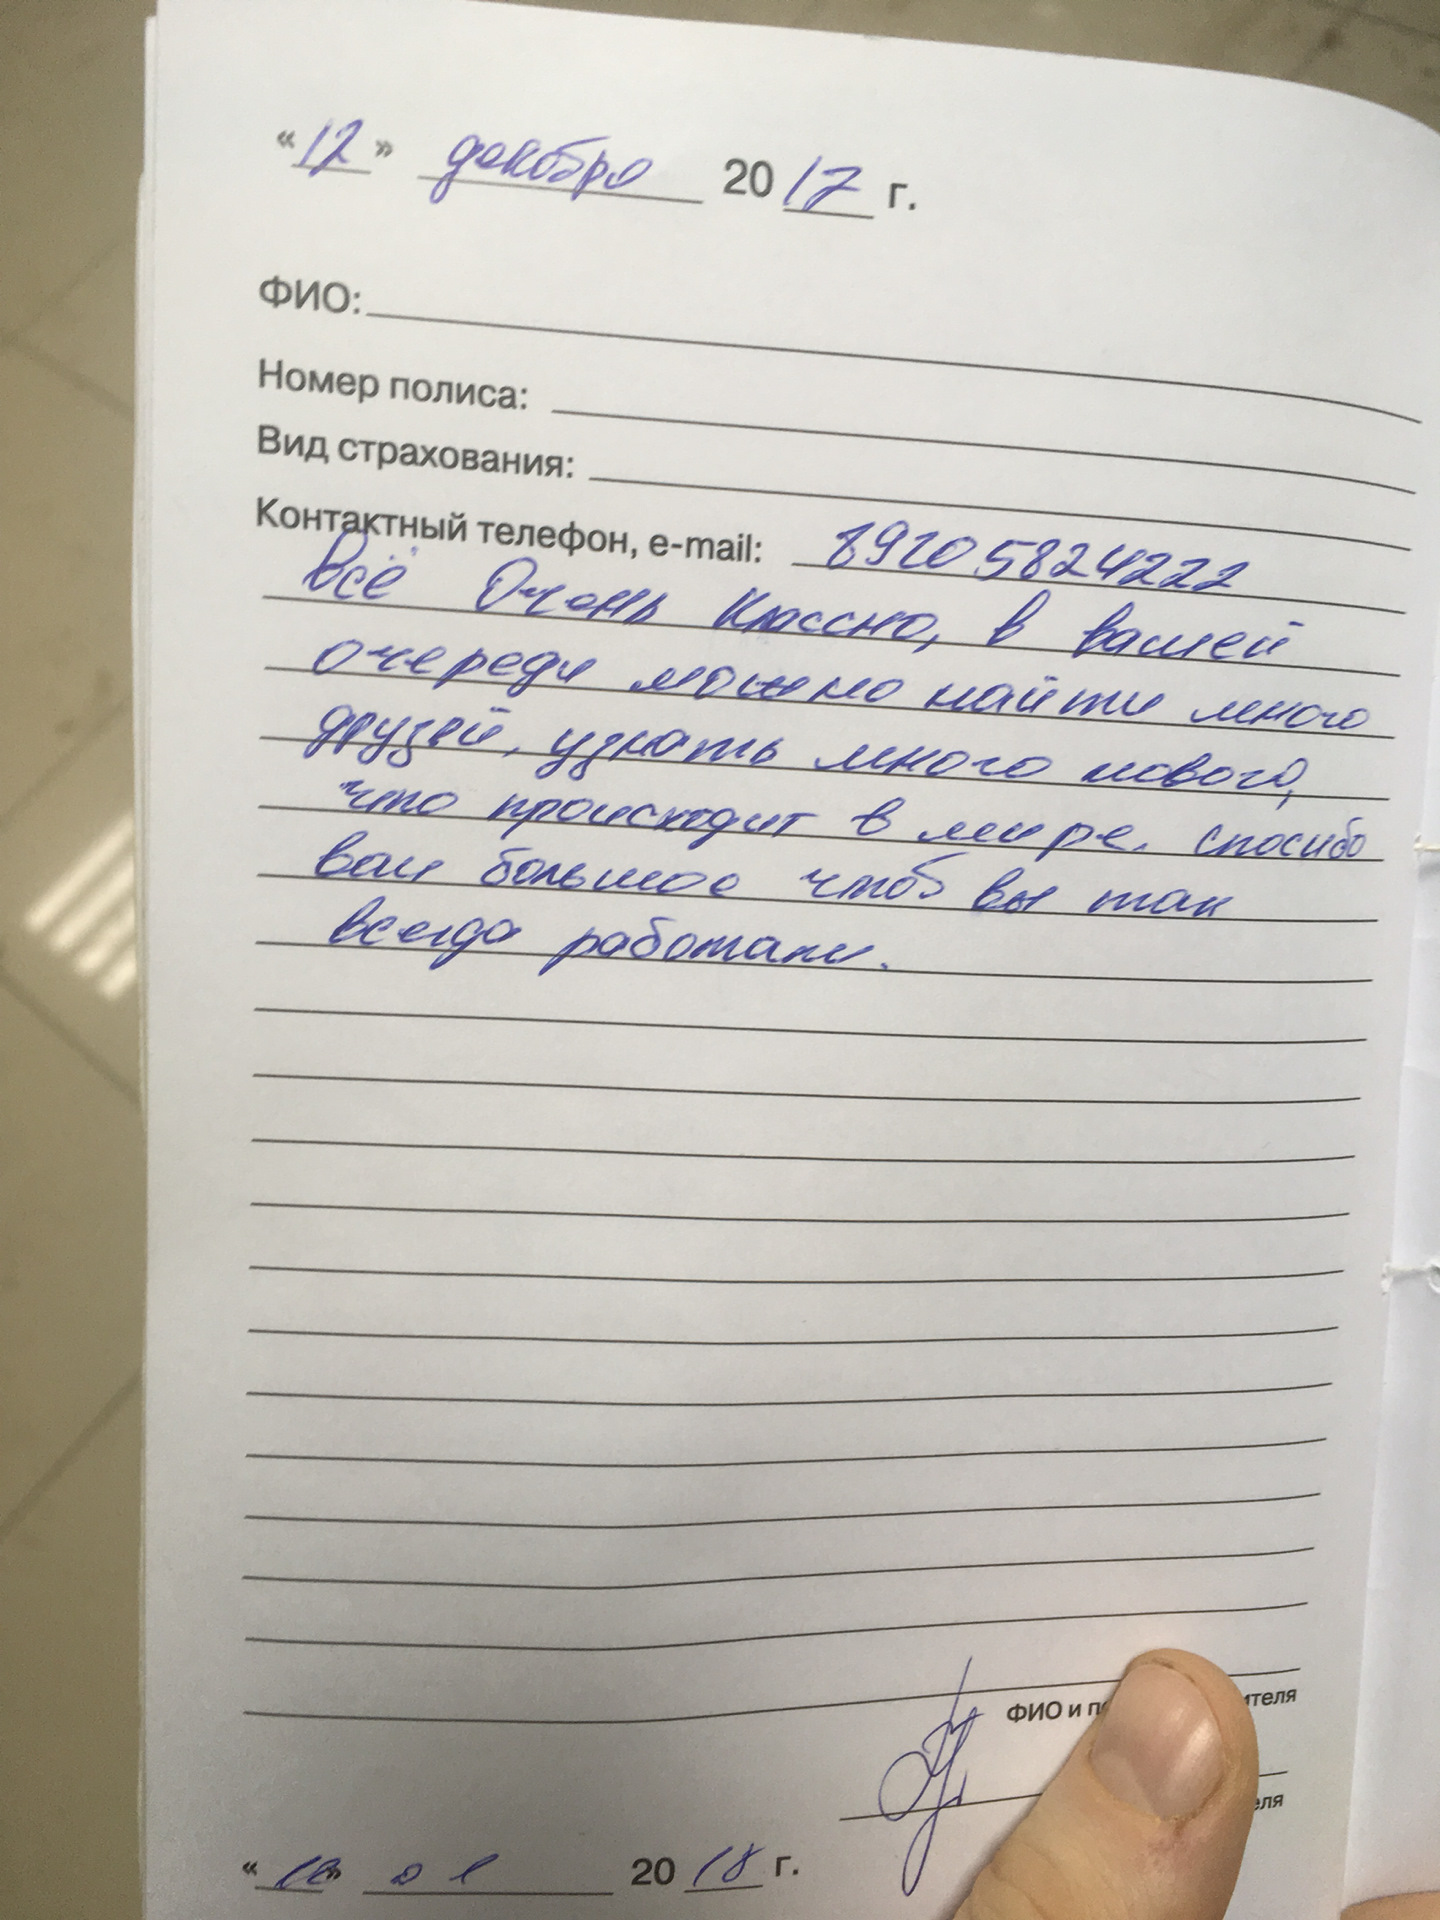 «12» декабря 2017 г.
ФИО:
Номер полиса:
Вид страхования:
Контактный телефон, e-mail: 89205824222
Всё Очень Классно, в вашей
очереди можно найти много
друзей, узнать много нового,
что происходит в мире. спосибо
вам большое чтоб вы так
всегда работали.
ФИО и
ителя
еля
« » 01 2018 г.